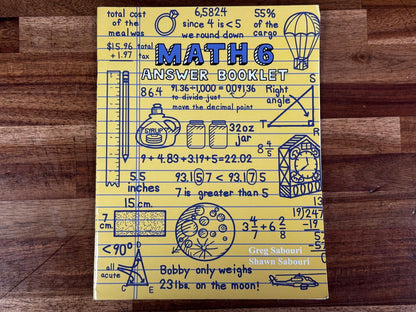 total cost
of the
meal was
$15.96 total
+ 1.97 tax
6,582.4
since 4 is <5
we round down
55%
of the
cargo
MATH 6
ANSWER BOOKLET
864
91.36÷1,000 = 0.09136
to divide just
move the decimal point
Right
angle
S
T
R
SYRUP
32oz
jar
8 4/5
9 + 4.83 + 3.19 + 5 = 22.02
5.5
inches
93.157 < 93.175
7 is greater than 5
15 cm.
7
cm
3 4/7 + 6 2/8
13
19)247
-19
57
-57
0
<90°
all
acute
D
C
E
Greg Sabouri
Shawn Sabouri
Bobby only weighs
23 lbs. on the moon!